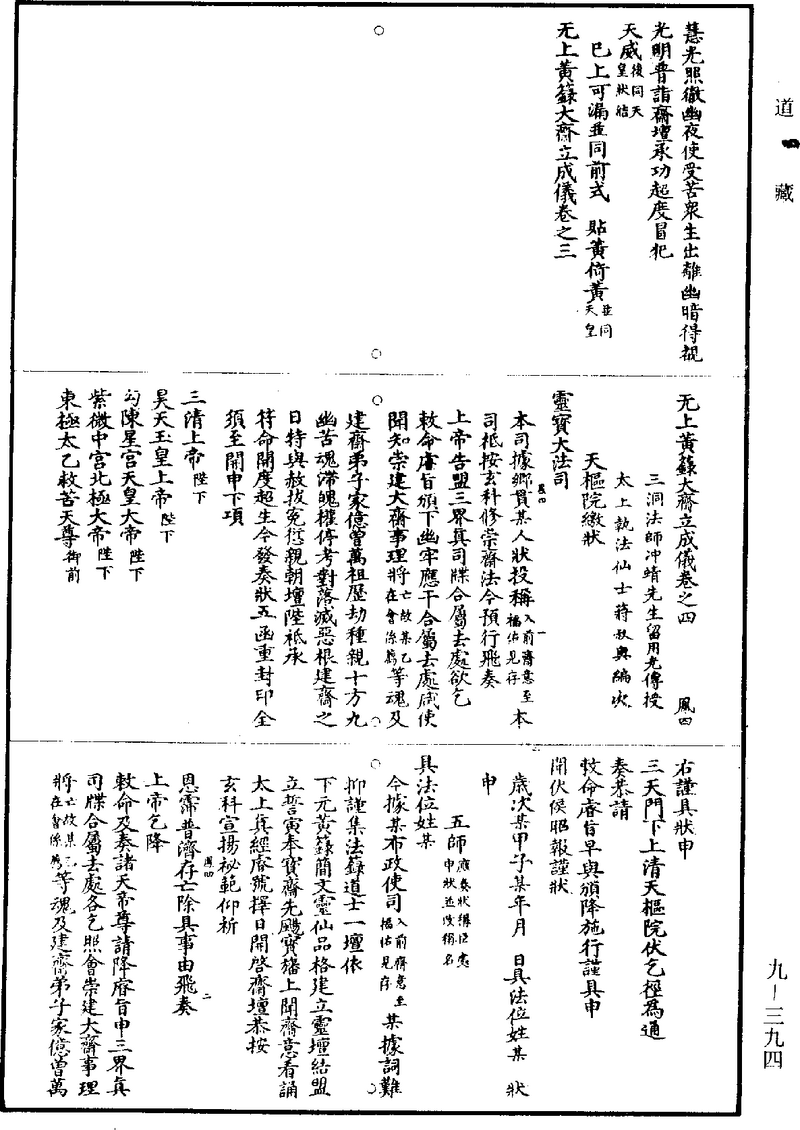 道藏
慧光照徹幽夜使受苦眾生出離幽暗得覩
光明普詣齋壇承功超度冒犯
天威後同天皇狀結
巳上可漏並同前式　貼黃倚黃並同天皇
无上黃籙大齋立成儀卷之三
无上黃籙大齋立成儀卷之四　鳳四
三洞法師冲靖先生留用光傳授
太上執法仙士蔣叔輿編次
天樞院繳狀
靈寶大法司
本司據鄉貫某人狀投稱入前齋意至福佑見存本
司祗按玄科修崇齋法今預行飛奏
上帝告盟三界真司牒合屬去處欲乞
敕命睿旨頒下幽牢應干合屬去處咸使
聞知崇建大齋事理將亡故某乙在會係薦等魂及
建齋弟子家億曾萬祖歷劫種親十方九
幽苦魂滯魄權停考對落滅惡根建齋之
日特與赦拔冤愆親朝壇陛祗承
符命開度超生今發奏狀五函重封印全
須至開申下項
三清上帝陛下
昊天玉皇上帝陛下
勾陳星宮天皇大帝陛下
紫微中宮北極大帝陛下
東極太乙救苦天尊御前
右謹具狀申
三天門下上清天樞院伏乞徑為通
奏恭請
敕命睿旨早與頒降施行謹具申
聞伏候昭報謹狀
歲次某甲子某年月　日具法位姓某　狀
申
五師應奏狀稱臣處申狀並改稱名
具法位姓某
今據某布政使司入前齋意至福佑見存某據詞難
抑謹集法籙道士一壇依
下元黃籙簡文靈仙品格建立靈壇結盟
立誓寅奉寶齋先颺寶旛上聞齋意看誦
太上真經睿號擇日開啓齋壇恭按
玄科宣揚祕範仰祈
恩霈普濟存亡除具事由飛奏
上帝乞降
敕命及奏諸天帝尊請降睿旨申三界真
司牒合屬去處各乞照會崇建大齋事理
將亡故某乙在會係薦等魂及建齋弟子家億曾萬
九－三九四